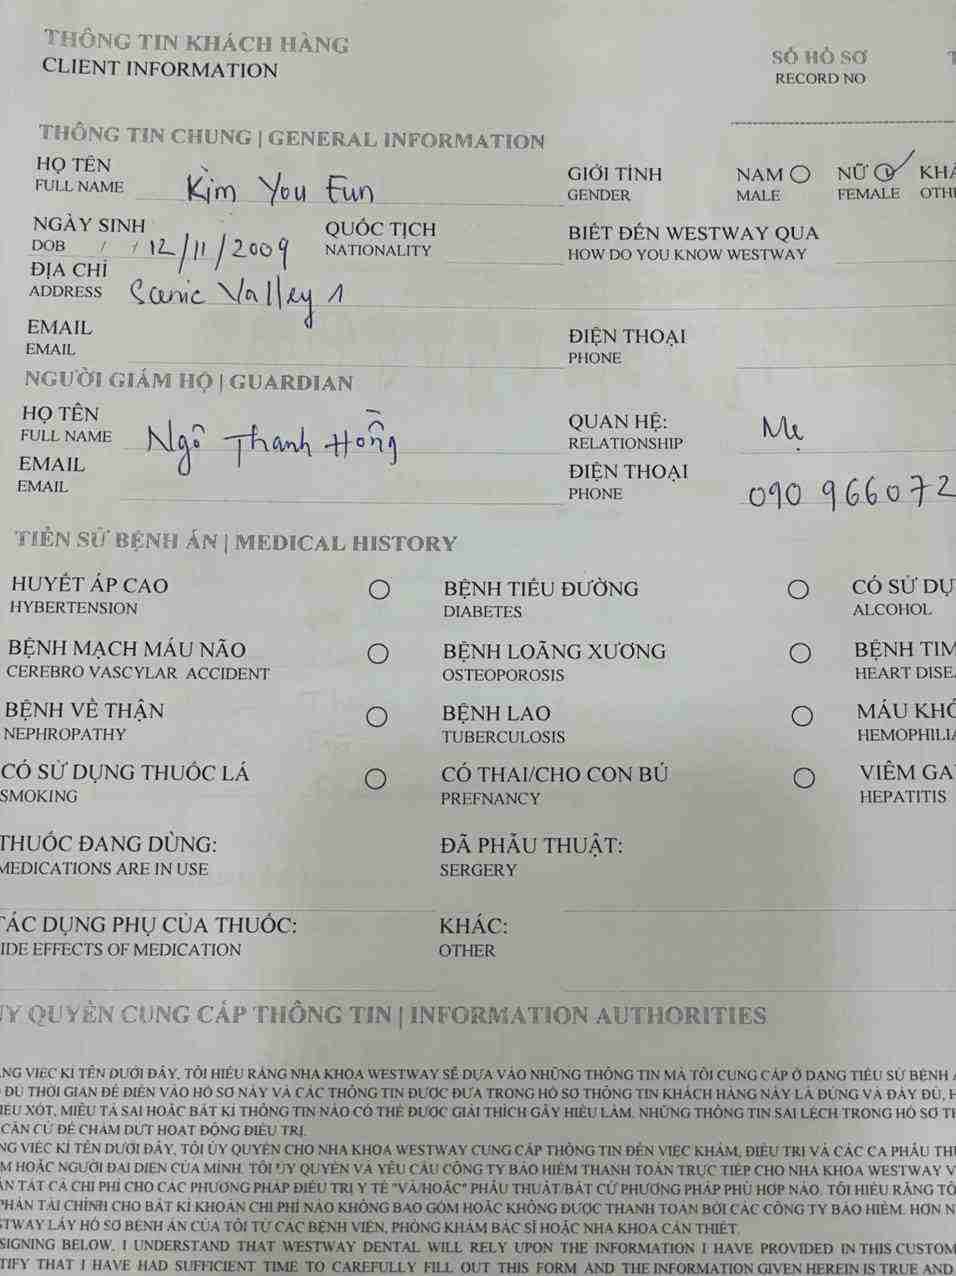 THÔNG TIN KHÁCH HÀNG
CLIENT INFORMATION
SỐ HỒ SƠ
RECORD NO
THÔNG TIN CHUNG | GENERAL INFORMATION
HỌ TÊN
FULL NAME
Kim You Eun
GIỚI TÍNH
GENDER
NAM
MALE
NỮ
FEMALE
NGÀY SINH
DOB / / 12/11/2009
QUỐC TỊCH
NATIONALITY
BIẾT ĐẾN WESTWAY QUA
HOW DO YOU KNOW WESTWAY
ĐỊA CHỈ
ADDRESS
Scenic Valley 1
EMAIL
EMAIL
ĐIỆN THOẠI
PHONE
NGƯỜI GIÁM HỘ | GUARDIAN
HỌ TÊN
FULL NAME
Ngô Thanh Hồng
QUAN HỆ:
RELATIONSHIP
Mẹ
EMAIL
EMAIL
ĐIỆN THOẠI
PHONE
090 966072
TIỀN SỬ BỆNH ÁN | MEDICAL HISTORY
HUYẾT ÁP CAO
HYBERTENSION
BỆNH TIỂU ĐƯỜNG
DIABETES
CÓ SỬ DỤ
ALCOHOL
BỆNH MẠCH MÁU NÃO
CEREBRO VASCYLAR ACCIDENT
BỆNH LOÃNG XƯƠNG
OSTEOPOROSIS
BỆNH TIM
HEART DISEA
BỆNH VỀ THẬN
NEPHROPATHY
BỆNH LAO
TUBERCULOSIS
MÁU KHÓ
HEMOPHILIA
CÓ SỬ DỤNG THUỐC LÁ
SMOKING
CÓ THAI/CHO CON BÚ
PREFNANCY
VIÊM GA
HEPATITIS
THUỐC ĐANG DÙNG:
MEDICATIONS ARE IN USE
ĐÃ PHẪU THUẬT:
SERGERY
TÁC DỤNG PHỤ CỦA THUỐC:
IDE EFFECTS OF MEDICATION
KHÁC:
OTHER
ỦY QUYỀN CUNG CẤP THÔNG TIN | INFORMATION AUTHORITIES
NG VIỆC KÍ TÊN DƯỚI ĐÂY, TÔI HIỂU RẰNG NHA KHOA WESTWAY SẼ DỰA VÀO NHỮNG THÔNG TIN MÀ TÔI CUNG CẤP Ở DẠNG TIỂU SỬ BỆNH
ĐỦ THỜI GIAN ĐỂ ĐIỀN VÀO HỒ SƠ NÀY VÀ CÁC THÔNG TIN ĐƯỢC ĐƯA TRONG HỒ SƠ THÔNG TIN KHÁCH HÀNG NÀY LÀ ĐÚNG VÀ ĐẦY ĐỦ,
IẾU XÓT, MIÊU TẢ SAI HOẶC BẤT KÌ THÔNG TIN NÀO CÓ THỂ ĐƯỢC GIẢI THÍCH GÂY HIỂU LẦM. NHỮNG THÔNG TIN SAI LỆCH TRONG HỒ SƠ
CĂN CỨ ĐỂ CHẤM DỨT HOẠT ĐỘNG ĐIỀU TRỊ.
NG VIỆC KÍ TÊN DƯỚI ĐÂY, TÔI ỦY QUYỀN CHO NHA KHOA WESTWAY CUNG CẤP THÔNG TIN ĐẾN VIỆC KHÁM, ĐIỀU TRỊ VÀ CÁC CA PHẪU
M HOẶC NGƯỜI ĐẠI DIỆN CỦA MÌNH. TÔI ỦY QUYỀN VÀ YÊU CẦU CÔNG TY BẢO HIỂM THANH TOÁN TRỰC TIẾP CHO NHA KHOA WESTWAY
TẤT CẢ CHI PHÍ CHO CÁC PHƯƠNG PHÁP ĐIỀU TRỊ Y TẾ "VÀ/HOẶC" PHẪU THUẬT/BẤT CỨ PHƯƠNG PHÁP PHÙ HỢP NÀO. TÔI HIỂU RẰNG
TÀI CHÍNH CHO BẤT KÌ KHOẢN CHI PHÍ NÀO KHÔNG BAO GỒM HOẶC KHÔNG ĐƯỢC THANH TOÁN BỞI CÁC CÔNG TY BẢO HIỂM. HƠN
STWAY LẤY HỒ SƠ BỆNH ÁN CỦA TÔI TỪ CÁC BỆNH VIỆN, PHÒNG KHÁM BÁC SĨ HOẶC NHA KHOA CẦN THIẾT.
SIGNING BELOW, I UNDERSTAND THAT WESTWAY DENTAL WILL RELY UPON THE INFORMATION I HAVE PROVIDED IN THIS CUSTOM
TIFY THAT I HAVE HAD SUFFICIENT TIME TO CAREFULLY FILL OUT THIS FORM AND THE INFORMATION GIVEN HEREIN IS TRUE AND